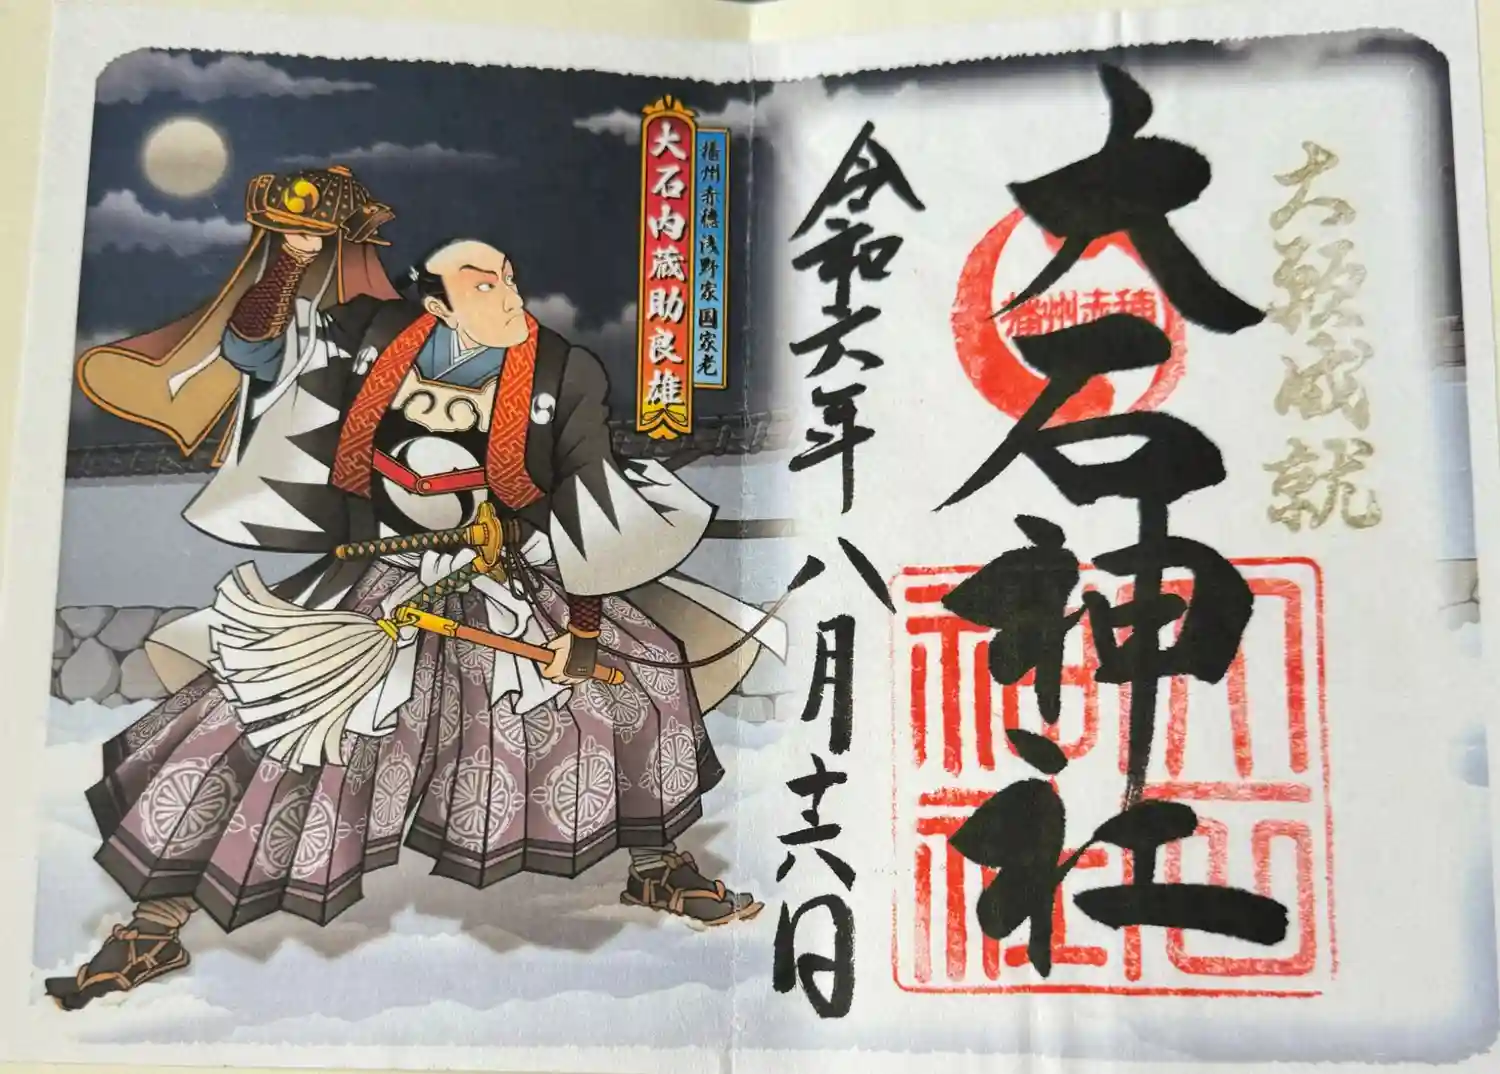 大願成就
大石神社
播州赤穂
大石神社
令和六年
八月十六日
播州赤穂浅野家国家老
大石内蔵助良雄